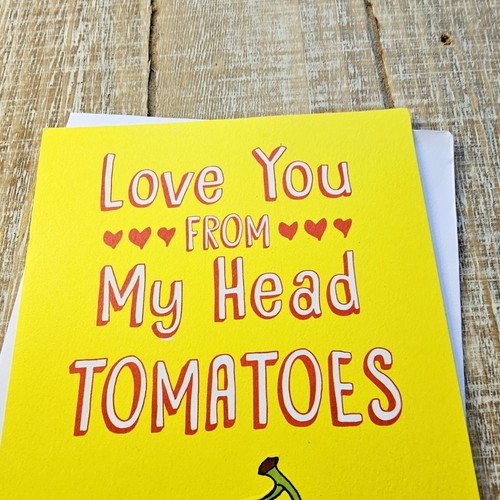 Love You
FROM
My Head
TOMATOES